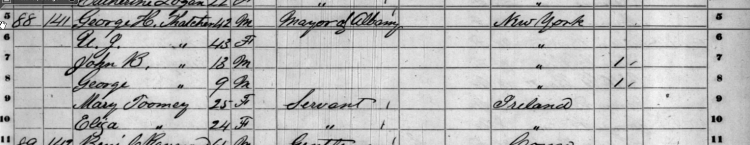 Catherine Logan 22 F
5 88 141 George H. Thatcher 42 M Mayor of Albany New York 5
6 U. J. " 43 F " 6
7 John B. " 13 M " 1 7
8 George " 9 M " 1 8
9 Mary Toomey 25 F Servant 1 Ireland 9
10 Eliza " 24 F " 1 " 10
11 89 142 11